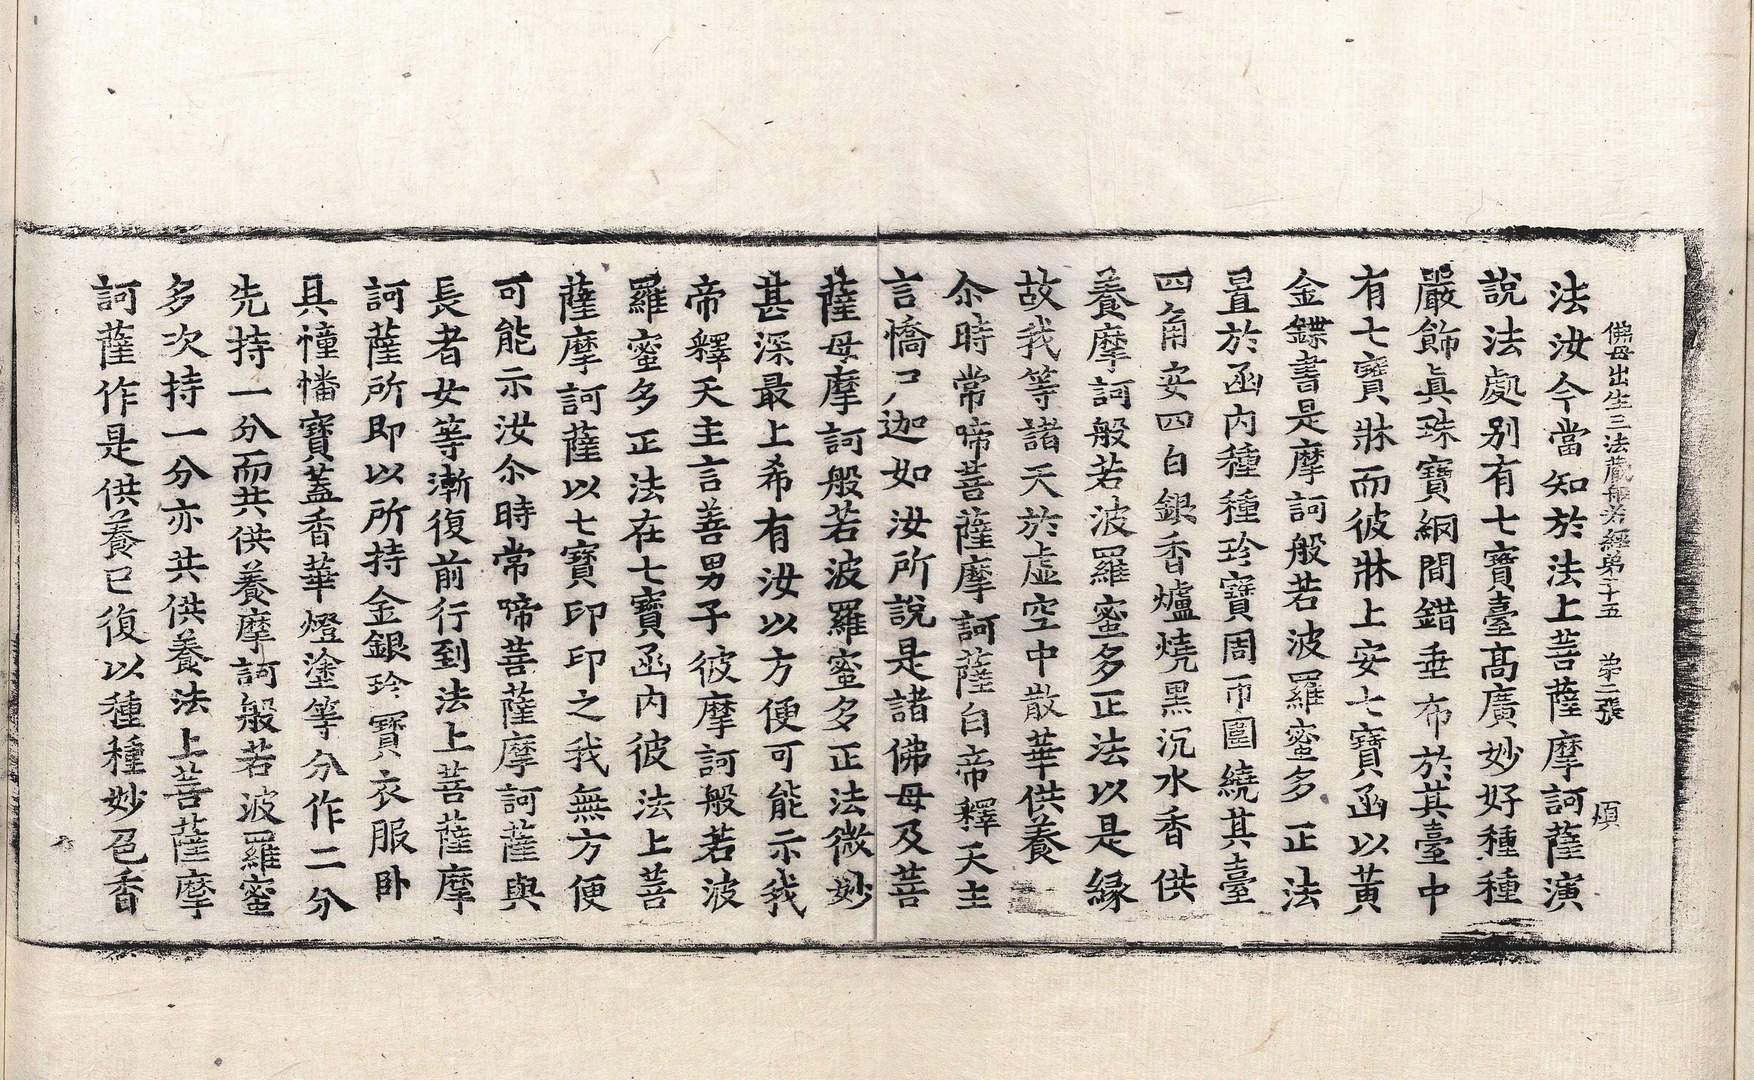 佛母出生三法藏般若經第二十五 第二張 煩
法汝今當知於法上菩薩摩訶薩演
說法處别有七寶臺髙廣妙好種種
嚴飾真珠寶網間錯垂布於其臺中
有七寶牀而彼牀上安七寶函以黃
金鍱書是摩訶般若波羅蜜多正法
置於函内種種珍寶周帀圍繞其臺
四角安四白銀香爐燒黑沉水香供
養摩訶般若波羅蜜多正法以是緣
故我等諸天於虛空中散華供養
尒時常啼菩薩摩訶薩白帝釋天主
言憍尸迦如汝所說是諸佛母及菩
薩母摩訶般若波羅蜜多正法微妙
甚深最上希有汝以方便可能示我
帝釋天主言善男子彼摩訶般若波
羅蜜多正法在七寶函内彼法上菩
薩摩訶薩以七寶印印之我無方便
可能示汝尒時常啼菩薩摩訶薩與
長者女等漸復前行到法上菩薩摩
訶薩所即以所持金銀珍寶衣服卧
具幢幡寶蓋香華燈塗等分作二分
先持一分而共供養摩訶般若波羅蜜
多次持一分亦共供養法上菩薩摩
訶薩作是供養已復以種種妙色香